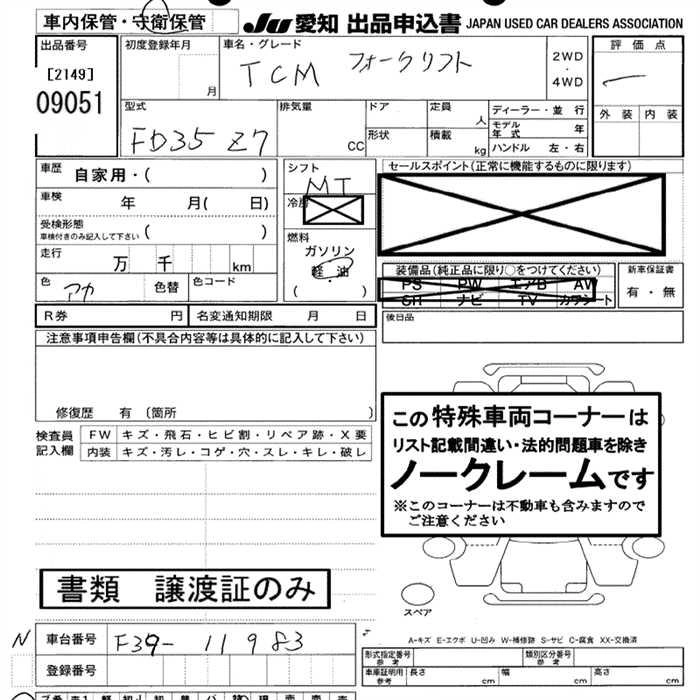 車内保管・守衛保管
JU 愛知 出品申込書 JAPAN USED CAR DEALERS ASSOCIATION
出品番号
[2149]
09051
初度登録年月
月
車名・グレード
TCM フォークリフト
2WD
・
4WD
評価点
外装 内装
型式
FD35 Z7
排気量
CC
ドア
形状
定員
人
積載
kg
ディーラー・並行
モデル年式 年
ハンドル 左・右
車歴
自家用・( )
車検
年 月( 日)
受検形態
車検付きのみ記入して下さい ( )
走行
万 千 km
色
アカ
色替
色コード
シフト
MT
冷房
燃料
ガソリン
軽・油
( )
セールスポイント(正常に機能するものに限ります)
装備品(純正品に限り○をつけてください)
PS PW エアB AW
SR ナビ TV カワシート
新車保証書
有・無
R券 円
名変通知期限 月 日
後日品
注意事項申告欄(不具合内容等は具体的に記入して下さい)
修復歴 有 (箇所 )
検査員
記入欄
FW キズ・飛石・ヒビ割・リペア跡・X要
内装 キズ・汚レ・コゲ・穴・スレ・キレ・破レ
この特殊車両コーナーは
リスト記載間違い・法的問題車を除き
ノークレームです
※このコーナーは不動車も含みますので
ご注意ください
書類 譲渡証のみ
スペア
A-キズ E-エクボ U-凹み W-補修跡 S-サビ C-腐食 XX-交換済
N 車台番号 F39- 11983
登録番号
形式指定番号
参考
類別区分番号
参考
車庫証明用
参考
長さ cm 幅 cm 高さ cm